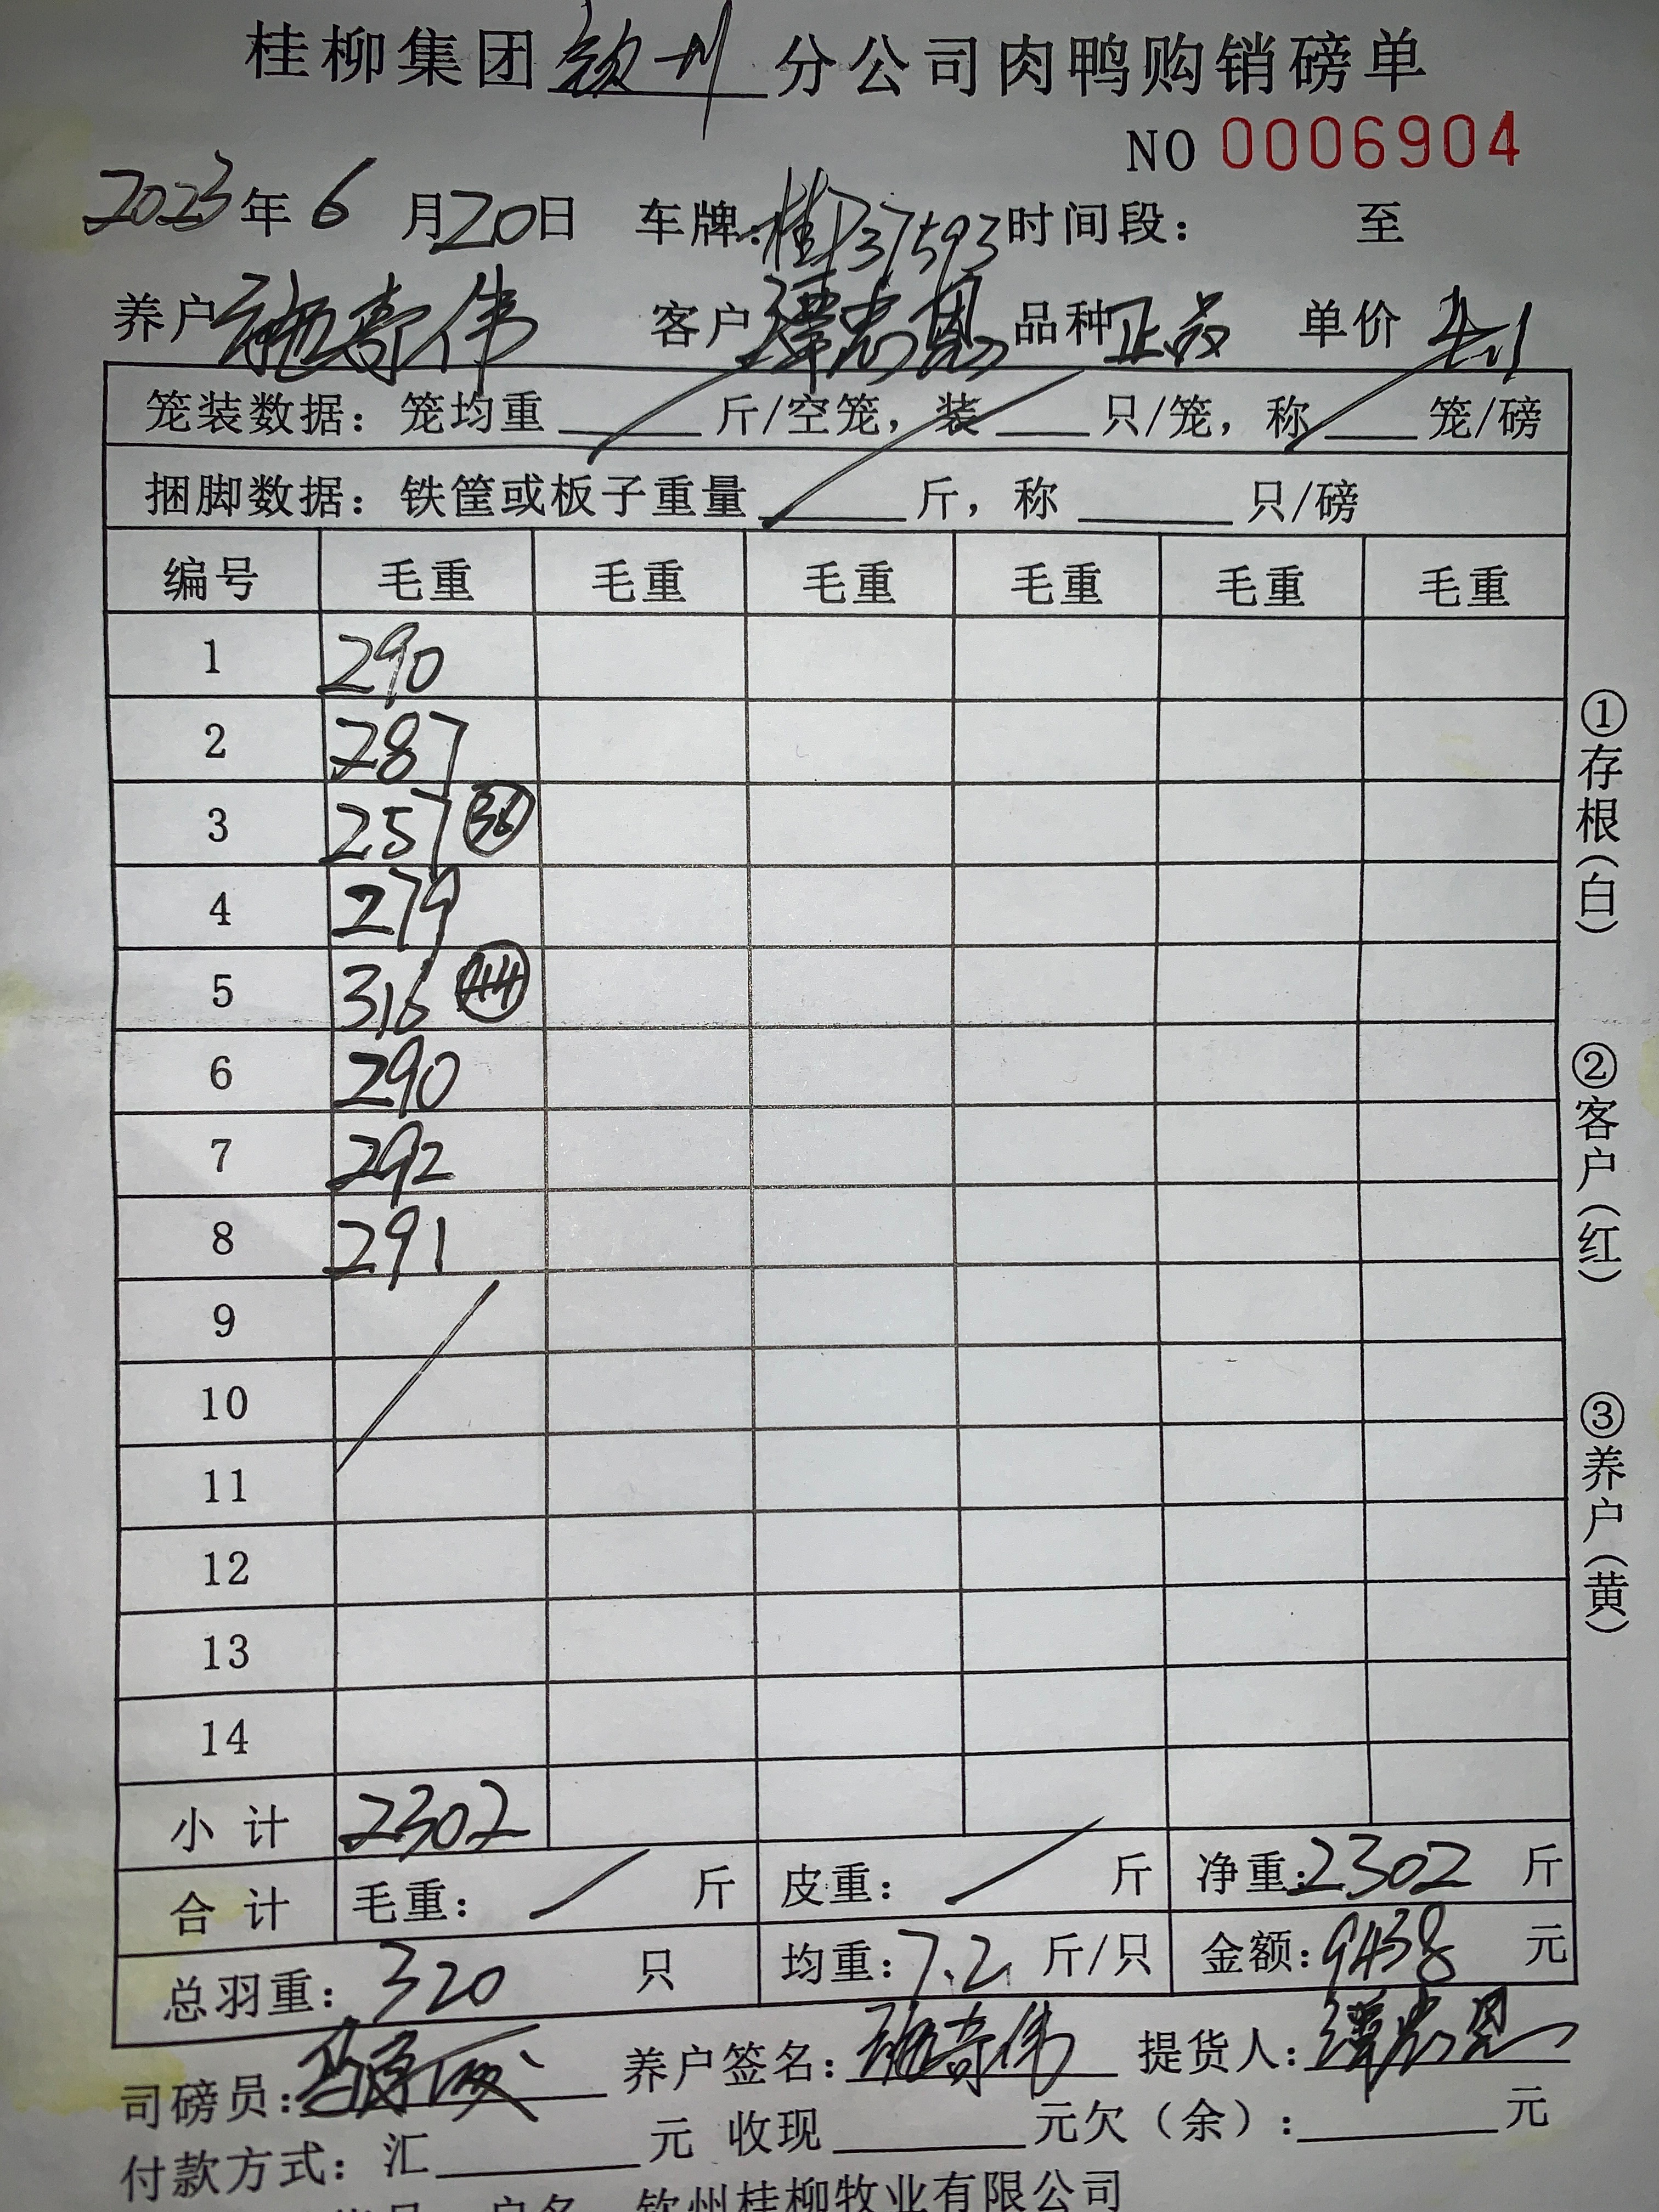 桂柳集团钦州分公司肉鸭购销磅单
NO 0006904
2023年6月20日 车牌:桂P37593 时间段: 至
养户 客户 谭忠恩 品种 正品 单价 4.1
笼装数据: 笼均重 斤/空笼, 装 只/笼, 称 笼/磅
捆脚数据: 铁筐或板子重量 斤, 称 只/磅
编号 毛重 毛重 毛重 毛重 毛重 毛重
1 290
2 287
3 257 36
4 279
5 316 44
6 290
7 292
8 291
9
10
11
12
13
14
小计 2302
合计 毛重: 斤 皮重: 斤 净重:2302 斤
总羽重: 320 只 均重:7.2 斤/只 金额:9438 元
司磅员: 养户签名: 提货人:谭忠恩
付款方式: 汇 元 收现 元欠(余): 元
户名 钦州桂柳牧业有限公司
①存根(白)
②客户(红)
③养户(黄)